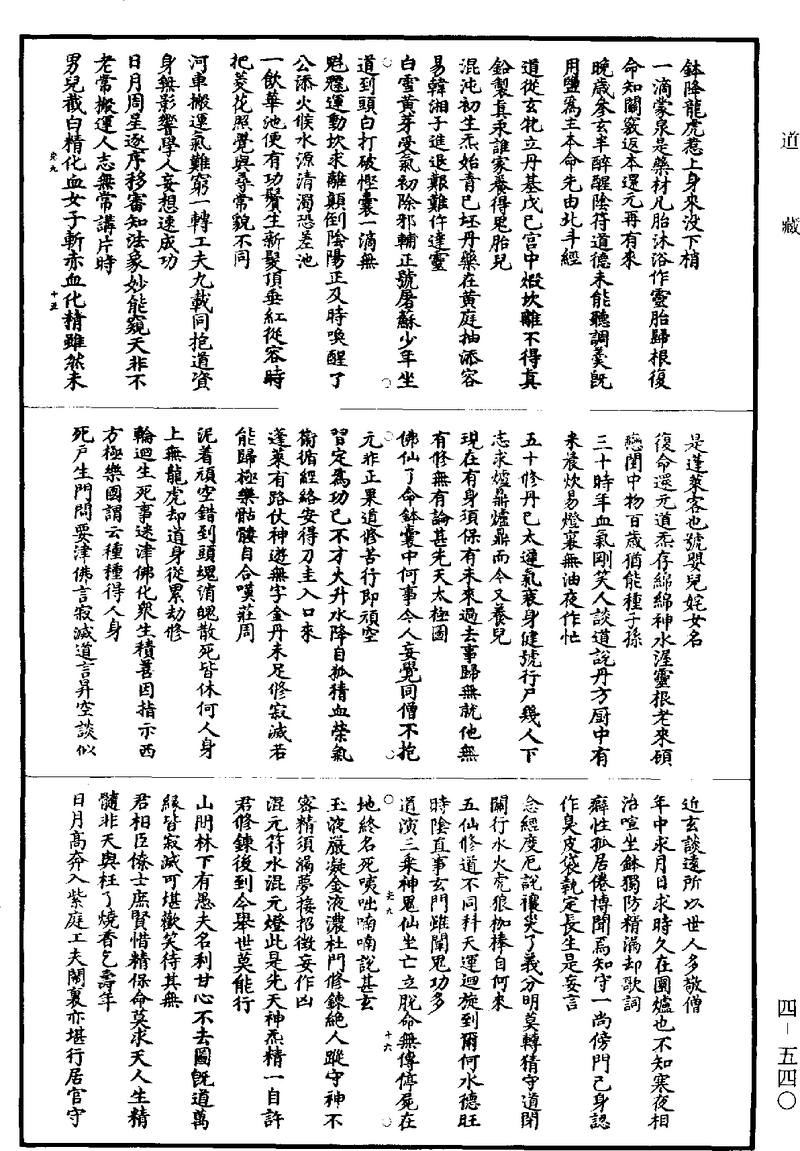 道藏
鉢降龍虎惹上身來没下梢
一滴蒙泉是藥材凡胎沐浴作靈胎歸根復
命知關竅返本還元再有來
晚歲參玄半醉醒陰符道德未能聽調羹旣
用鹽爲主本命先由北斗經
道從玄牝立丹基戊巳宫中煅坎離不得真
鉛製真汞誰家養得鬼胎兒
混沌初生炁始青巳坯丹藥在黄庭抽添容
易韓湘子進退艱難仵達靈
白雪黄芽受氣初除邪輔正號屠蘇少年坐
道到頭白打破慳囊一滴無
魁罡運動坎求離顛倒陰陽正及時喚醒了
公添火候水源清濁恐差池
一飲華池便有功鬢生新髮頂垂紅從容時
把菱花照覺與尋常貌不同
河車搬運氣難窮一轉工夫九載同抱道資
身無影響學人妄想速成功
日月周星逐序移審知法象妙能窺天非不
老常搬運人志無常講片時
男兒截白精化血女子斬赤血化精雖然未
炎九 十五
是蓬萊客也號嬰兒姹女名
復命還元道炁存綿綿神水渥靈根老來碩
戀閨中物百歲猶能種子孫
三十時年血氣剛笑人談道說丹方厨中有
米晨炊易燈裏無油夜作忙
五十修丹巳太遲氣衰身健號行尸幾人下
志求爐鼎爐鼎而今又養兒
現在有身須保有未來過去事歸無就他無
有修無有論甚先天太極圖
佛仙了命鉢囊中何事今人妄覺同僧不抱
元非正果道修苦行即頑空
習定爲功巳不才火升水降自抓精血榮氣
衛循經絡安得刀圭入口來
蓬萊有路仗神遊無字金丹未足修寂滅若
能歸極樂骷髏自合嘆莊周
泥着頑空錯到頭魂消魄散死皆休何人身
上無龍虎却道身從累劫修
輪迴生死事迷津佛化衆生積善因指示西
方極樂國謂云種種得人身
死戸生門問要津佛言寂滅道言昇空談似
近玄談遠所以世人多敬僧
年中求月日求時久在圍爐也不知寒夜相
治喧坐鉢獨防精漏却歌詞
癖性孤居倦博聞焉知守一尚傍門己身認
作臭皮袋執定長生是妄言
念經度厄說禳災了義分明莫轉猜守道閉
關行水火虎狼枷棒自何來
五仙修道不同科天運迴旋到爾何水德旺
時陰直事玄門雖闡鬼功多
道演三乘神鬼仙坐亡立脫命無傳停屍在
炎九 十六
地終名死唊咄喃喃說甚玄
玉液嚴凝金液濃杜門修鍊絶人蹤守神不
密精須漏夢接招徵妄作凶
混元符水混元燈此是先天神炁精一自許
君修鍊後到今舉世莫能行
山間林下有愚夫名利甘心不去圖旣道萬
緣皆寂滅可堪歡笑待其無
君相臣僚士庶賢惜精保命莫求天人生精
髓非天與枉了燒香乞壽年
日月高奔入紫庭工夫鬧裏亦堪行居官守
四－五四〇